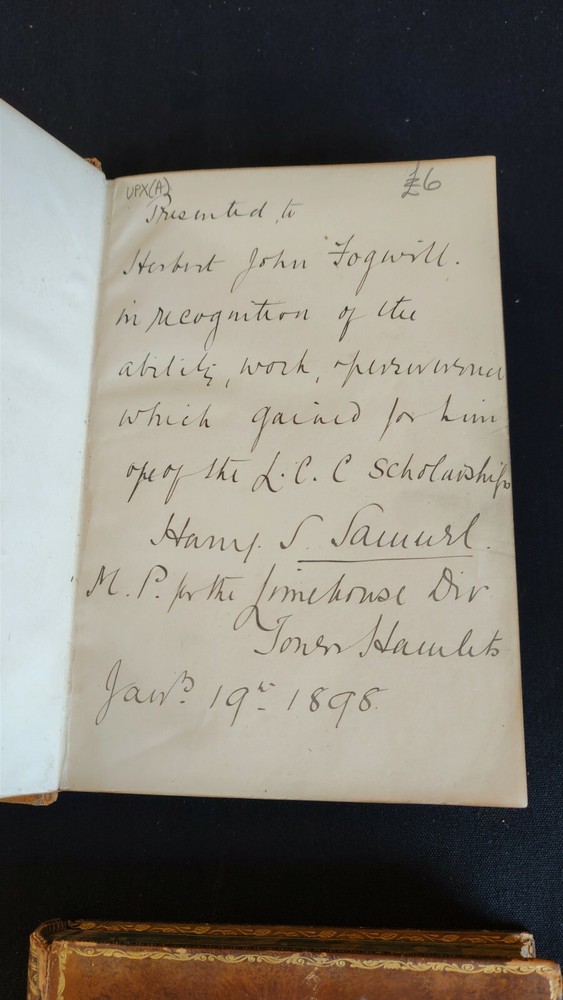 UPX(A)
£6
Presented to
Herbert John Fogwill.
in recognition of the
ability, work, & perseverance
which gained for him
one of the L.C.C Scholarships
Harry S. Samuel.
M.P. for the Limehouse Div
Tower Hamlets
Jany. 19th 1898